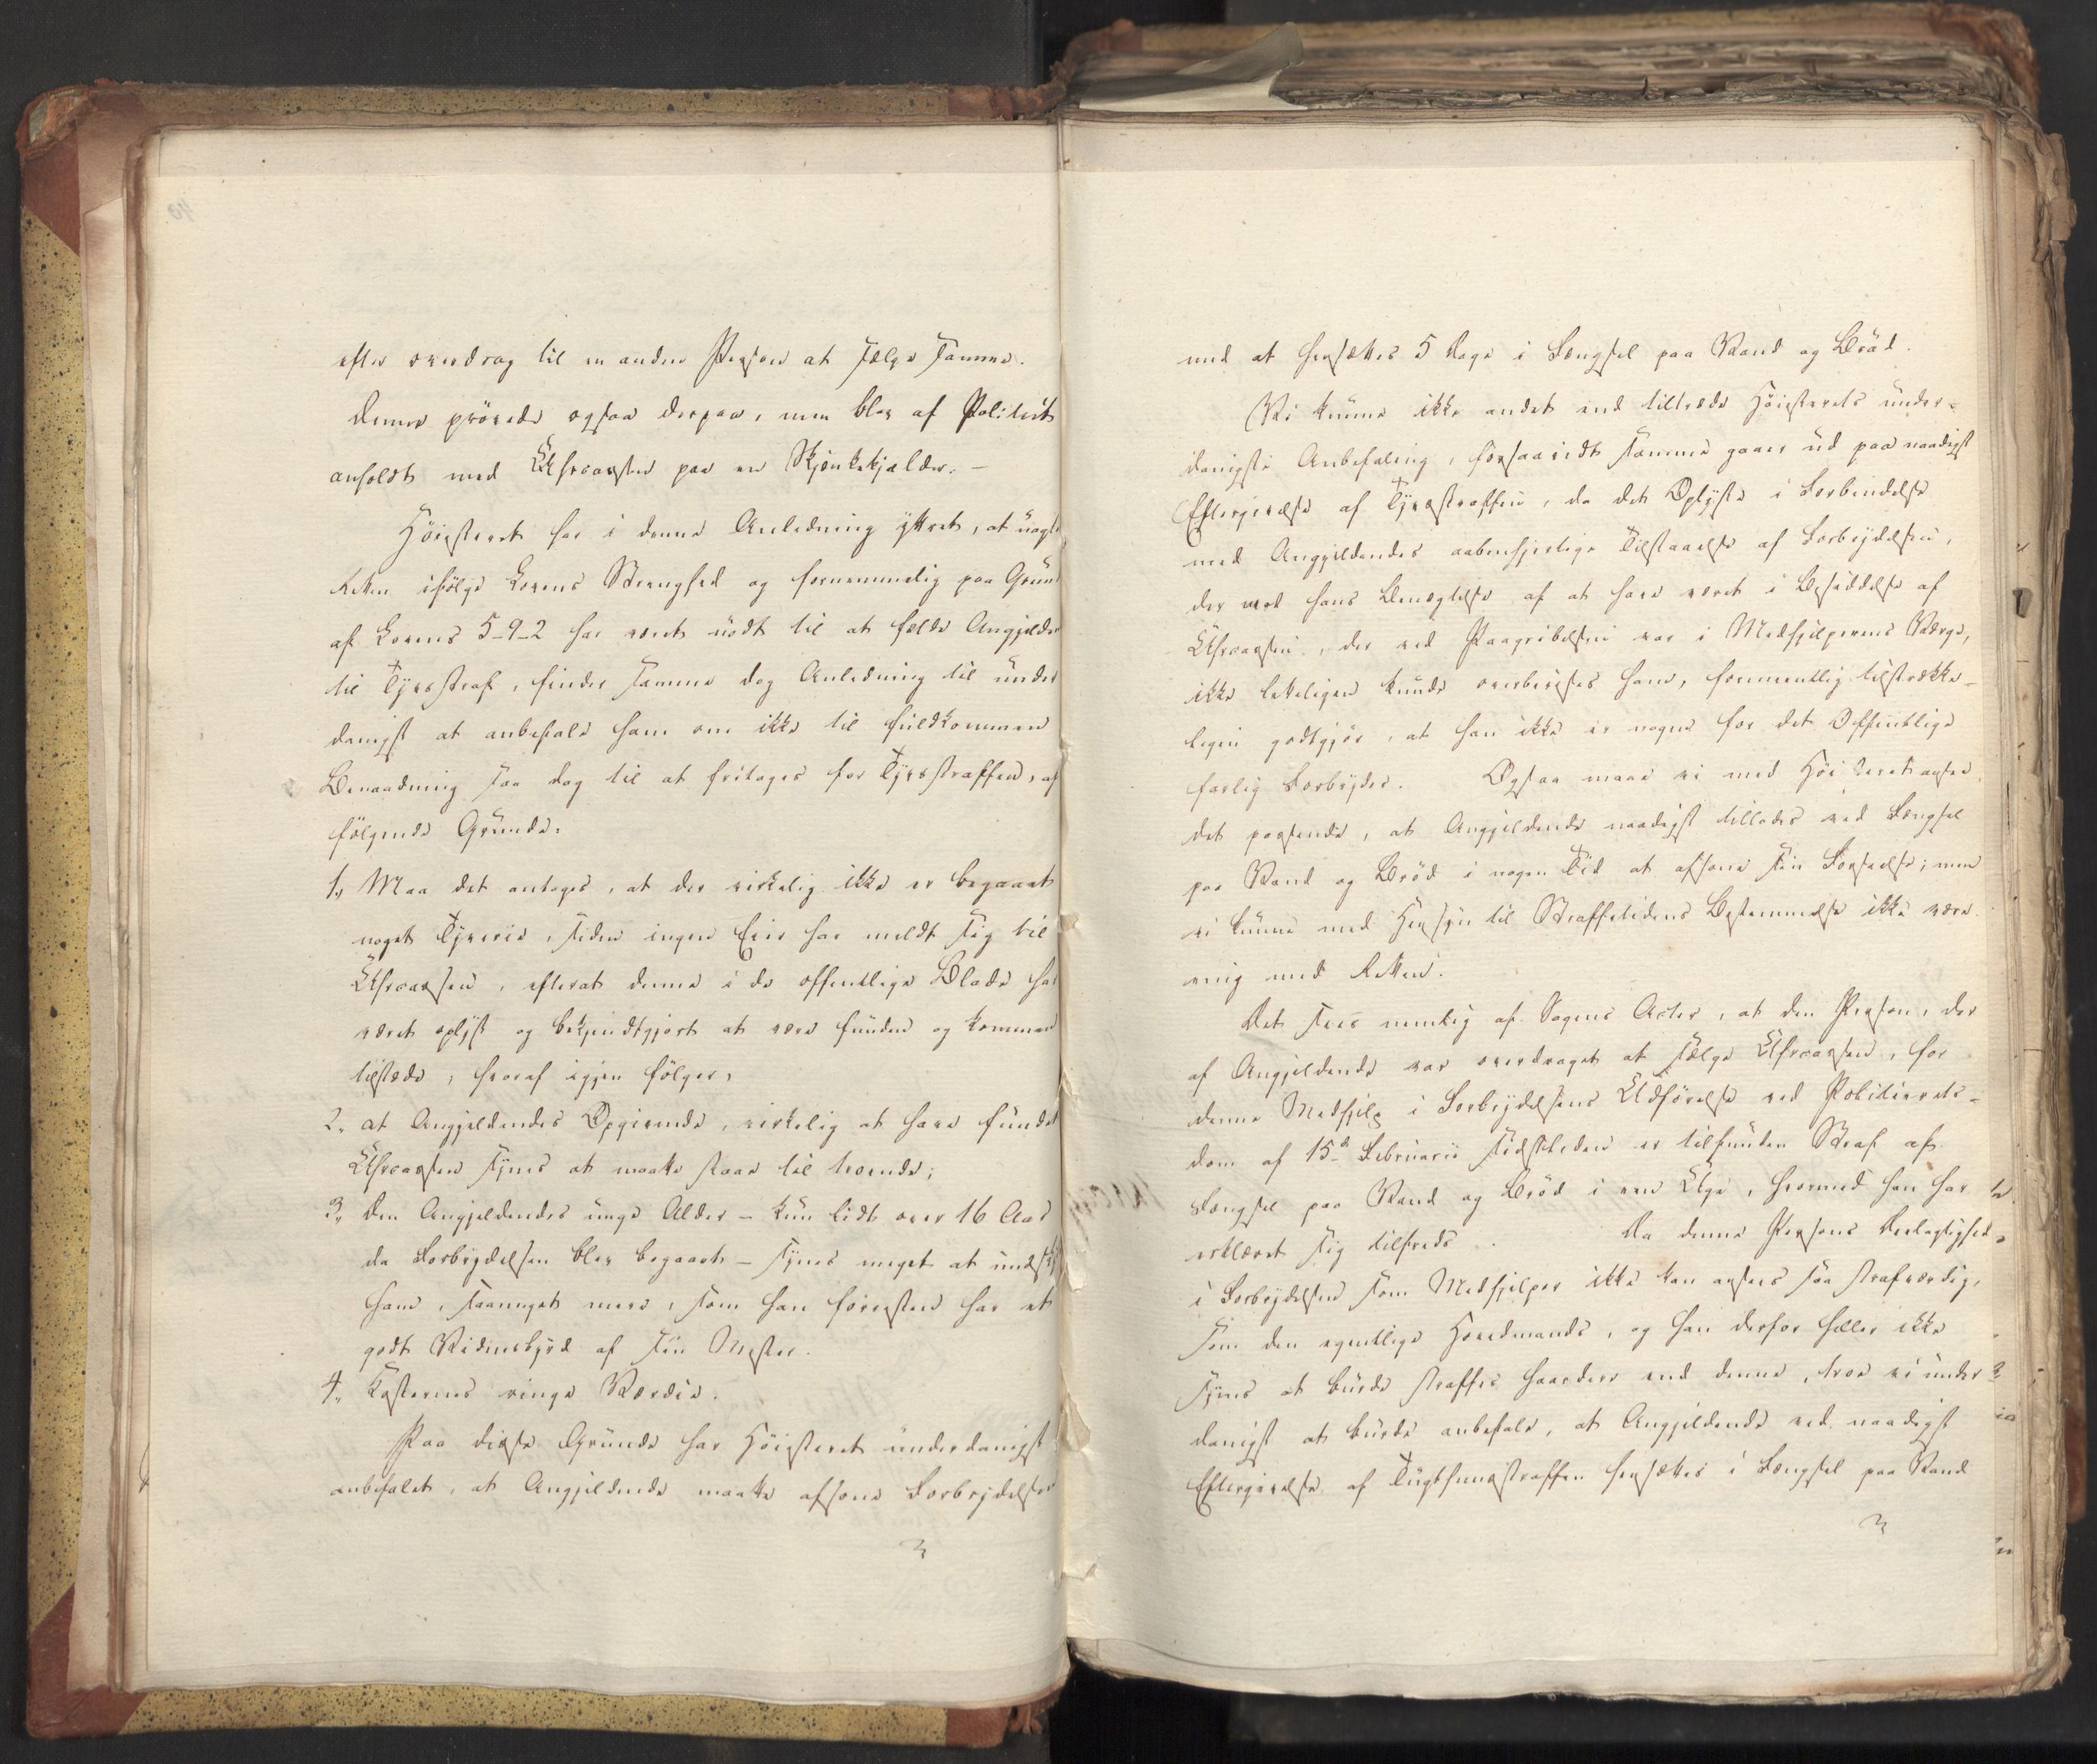 efter overdrog til en anden Person at sælge samme.
Denne prövede ogsaa derpaa, men blev af Politiet
anholdt med Uhrcassen paa en Skjenkekjælder. –
Höiesteret har i denne Anledning yttret, at uagtet
Retten ifölge Lovens Strenghed og fornemmelig paa Grund
af Lovens 5-9-2 har været nödt til at fælde Angjeldende
til Tyvsstraf, finder samme dog Anledning til under
danigst at anbefale ham om ikke til fuldkommen
Benaadning saa dog til at fritages for Tyvsstraffen, af
fölgende Grunde:
1, Maa det antages, at der virkelig ikke er begaaet
noget Tyverie, siden ingen Eier har meldt sig til
Uhrcassen, efterat denne i de offentlige Blade har
været oplyst og bekjendtgjort at være funden og kommen
tilstede, hvoraf igjen fölger,
2, at Angjeldendes Opgivende, virkelig at have fundet
Uhrcassen synes at maatte staae til troende;
3, den Angjeldendes unge Alder – kun lidt over 16 Aar
da Forbrydelsen blev begaaet – synes meget at undskylde
ham, saameget mere, som han forresten har et
godt Vidnesbyrd af sin Mester.
4, Kosternes ringe Værdie.
Paa disse Grunde har Höiesteret underdanigst
anbefalet, at Angjeldende maatte afsone Forbrydelsen
40
med at hensættes 5 Dage i Fængsel paa Vand og Bröd.
Vi kunne ikke andet end tiltræde Höiesterets under-
danigste Anbefaling, forsaavidt samme gaaer ud paa naadigst
Eftergivelse af Tyvsstraffen, da det Oplyste i Forbindelse
med Angjeldendes aabenhjertige Tilstaaelse af Forbrydelsen,
der mod hans Benegtelse af at have været i Besiddelse af
Uhrcassen, der ved Paagribelsen var i Medhjelperens Værge,
ikke letteligen kunde overbevises ham, formeentlig tilstrække-
ligen godtgjör, at han ikke er nogen for det Offentlige
farlig Forbryder. Ogsaa maae vi med Höiesteret ansee
det passende, at Angjeldende naadigst tillades ved Fængsel
paa Vand og Bröd i nogen Tid at afsone sin Forseelse; men
vi kunne med Hensyn til Straffetidens Bestemmelse ikke være
enig med Retten.
Det sees nemlig af Sagens Acter, at den Person, der
af Angjeldende var overdraget at sælge Uhrcassen, for
denne Medhjelp i Forbrydelsens Udförelse ved Politierets-
dom af 15de Februarii sidstleden er tilfunden Straf af
Fængsel paa Vand og Bröd i een Uge, hvormed han har
erklæret sig tilfreds. Da denne Persons Deelagtighed
i Forbrydelsen som Medhjelper ikke kan ansees saa strafværdig,
som den egentlige Hovedmands, og han derfor heller ikke
synes at burde straffes haardere end denne, troe vi under
danigst at burde anbefale, at Angjeldende ved naadigst
Eftergivelse af Tugthuusstraffen hensættes i Fængsel paa Vand